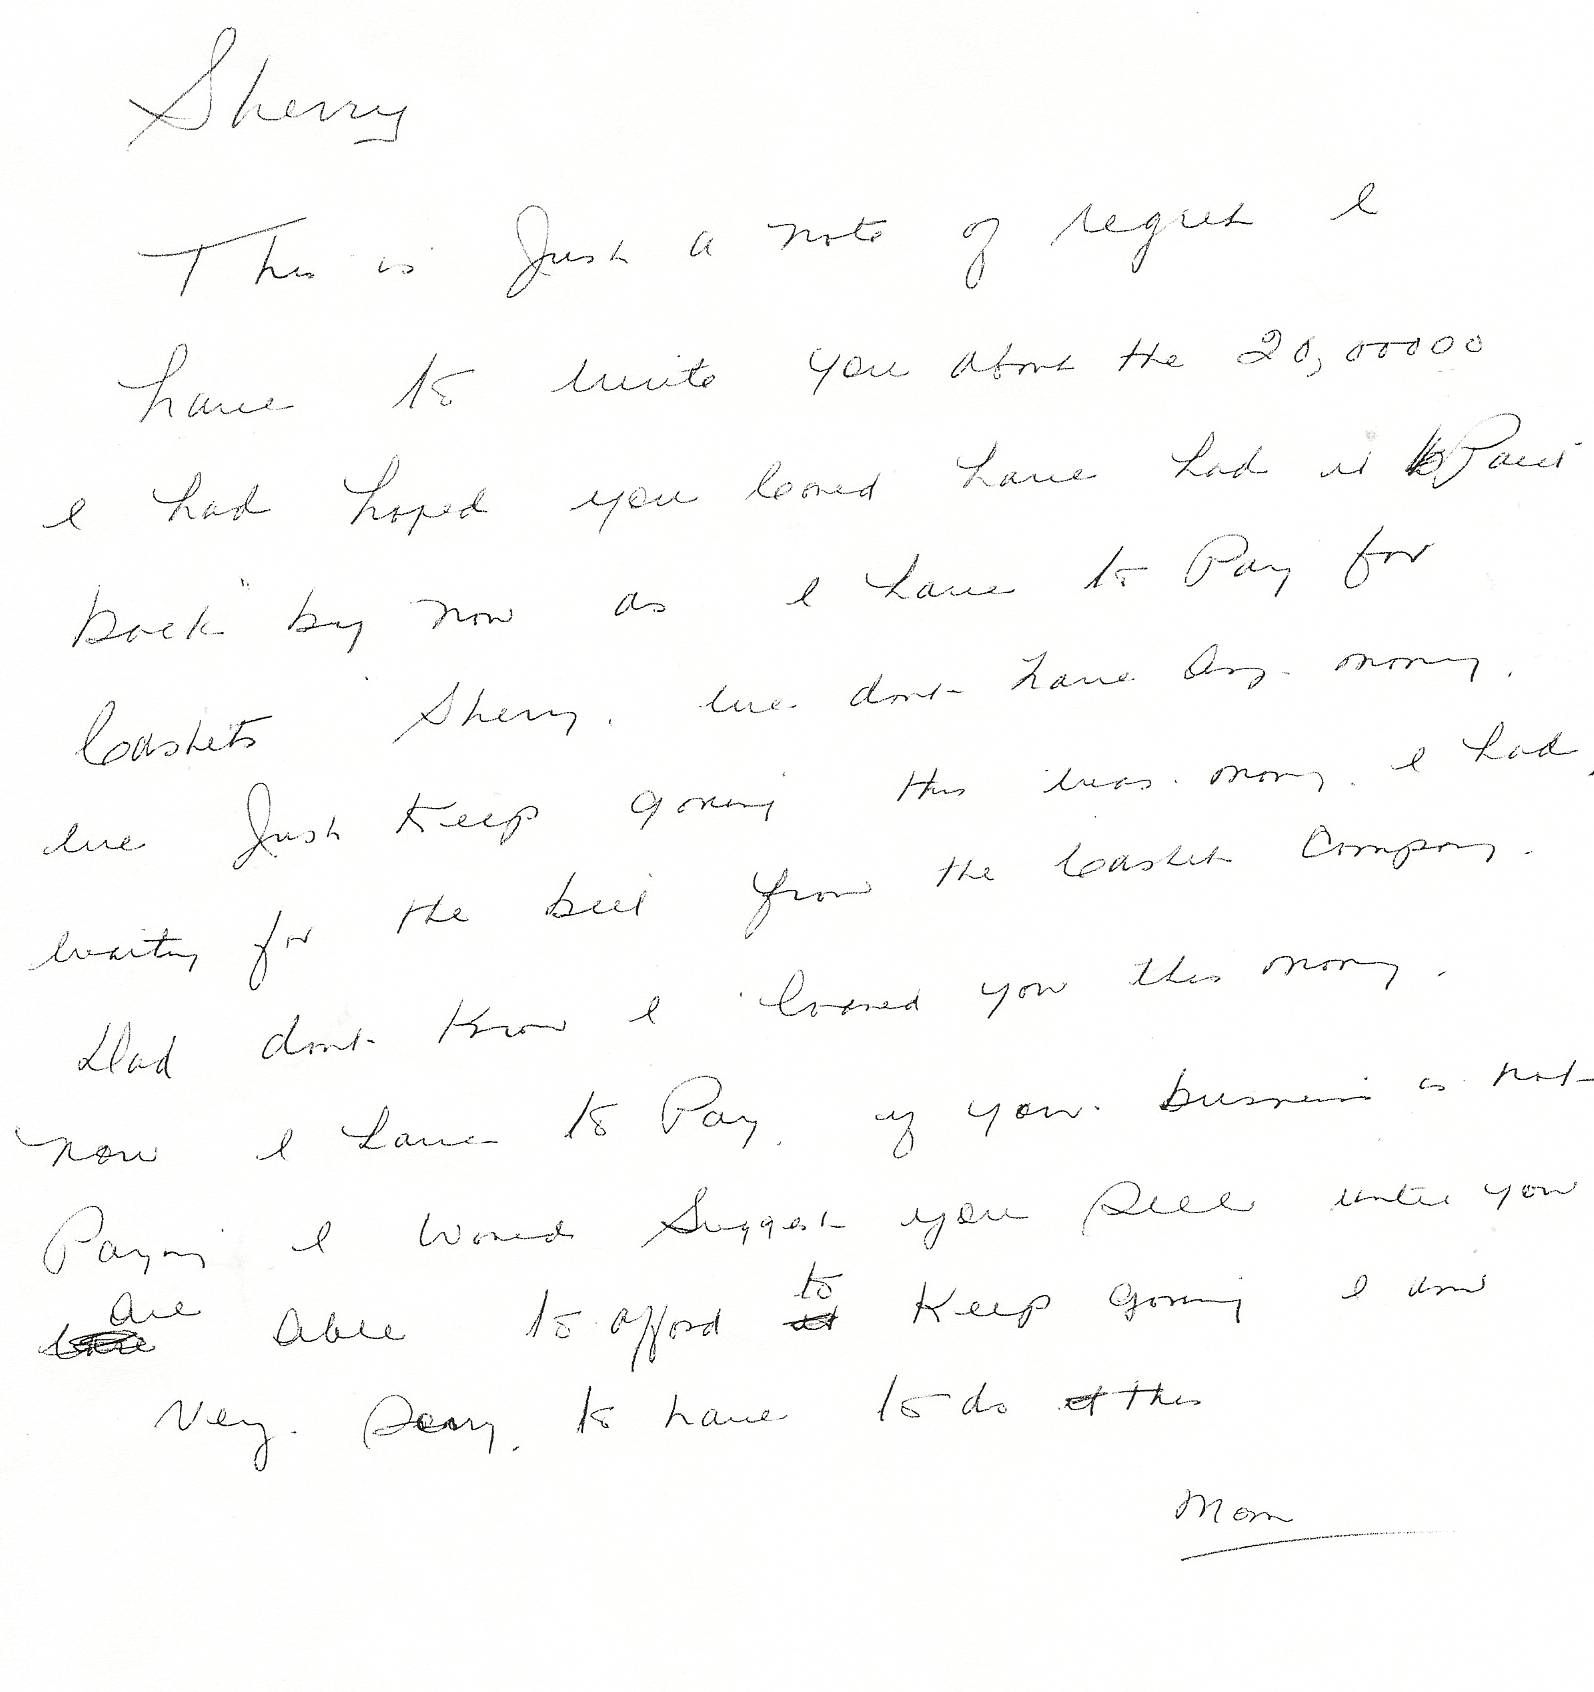 Sherry
This is Just a note of regret I
have to write you about the 20,00000
I had hoped you could have had it Paid
back" by now as I have to Pay for
Caskets Sherry. we dont have any money.
we Just Keep going this was money I had
waiting for the bill from the Casket Company.
Dad dont Know I loaned you this money.
now I have to Pay. if your business is not
Paying I would Suggest you sell until you
are able to afford to Keep going I am
Very Sorry. to have to do this
Mom